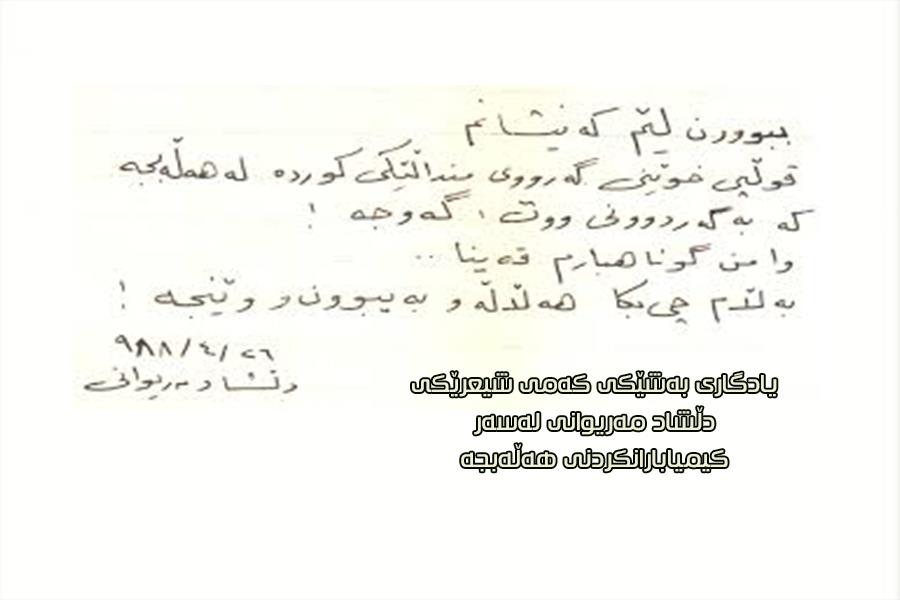 ببوورن لێم کە نیشانم
قوڵپی خوێنی گەرووی منداڵێکی کوردە لە هەڵەبجە
کە بە گەردوونی ووت، گەوجە!
وا من گوناهبارم قەینا..
بەڵام چی بکا هەڵاڵە و بەیبوون و وێنجە!
٩٨٨/٤/٢٦
دڵشاد مەریوانی
یادگاری بەشێکی کەمی شیعرێکی
دڵشاد مەریوانی لەسەر
کیمیابارانکردنی هەڵەبجە